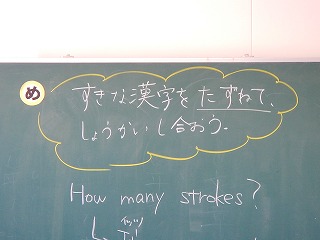 め
すきな漢字をたずねて、
しょうかいし合おう。
How many strokes?